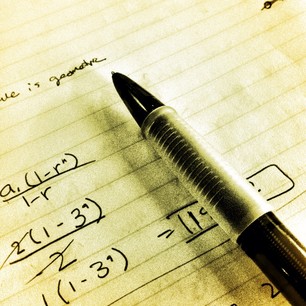 is geometric
a₁(1-rⁿ)
1-r
2(1-3ⁿ)
-2
1(1-3ⁿ)
=